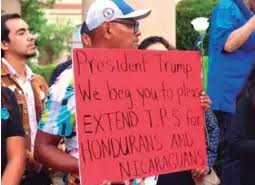 President Trump
We beg you to please
EXTEND T.P.S for
HONDURANS AND
NICARAGUANS